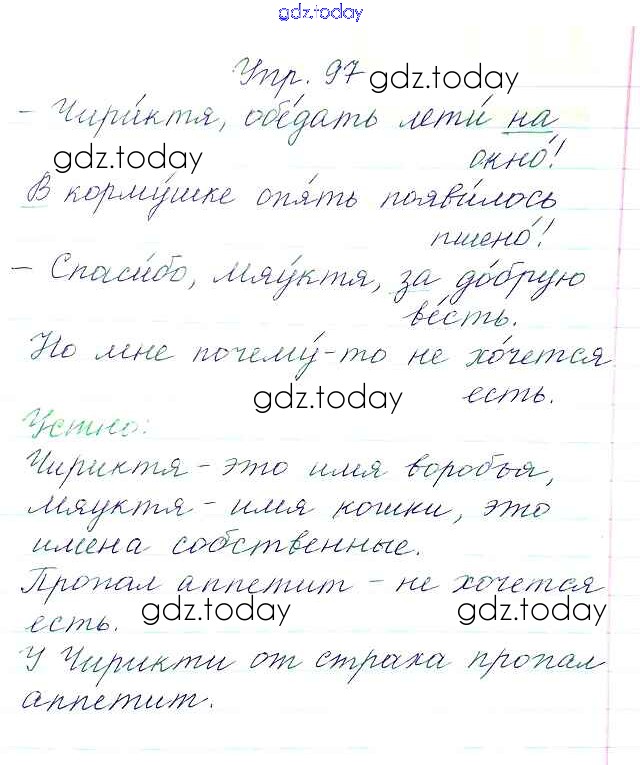 gdz.today
Упр. 97 gdz.today
– Чири́ктя, обе́дать лети́ на
gdz.today окно́!
В корму́шке опя́ть появи́лось
пшено́!
– Спаси́бо, Мяу́ктя, за до́брую
ве́сть.
Но мне почему́-то не хо́чется
gdz.today есть.
Устно:
Чириктя – это имя воробья,
Мяуктя – имя кошки, это
имена собственные.
Пропал аппетит – не хочется
есть. gdz.today gdz.today
У Чирикти от страха пропал
аппетит.